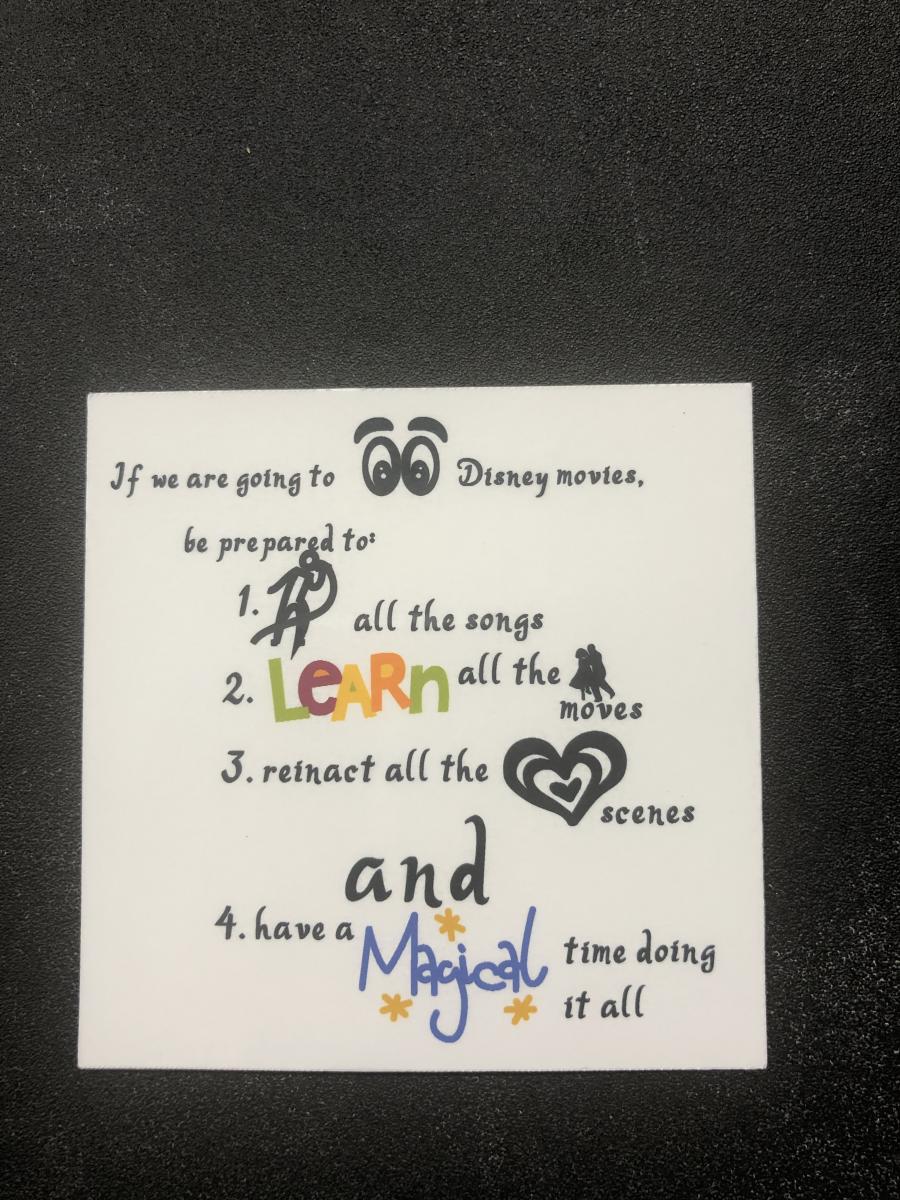 If we are going to Disney movies,
be prepared to:
1. all the songs
2. LeARn all the
moves
3. reinact all the
scenes
and
4. have a Magical time doing
it all